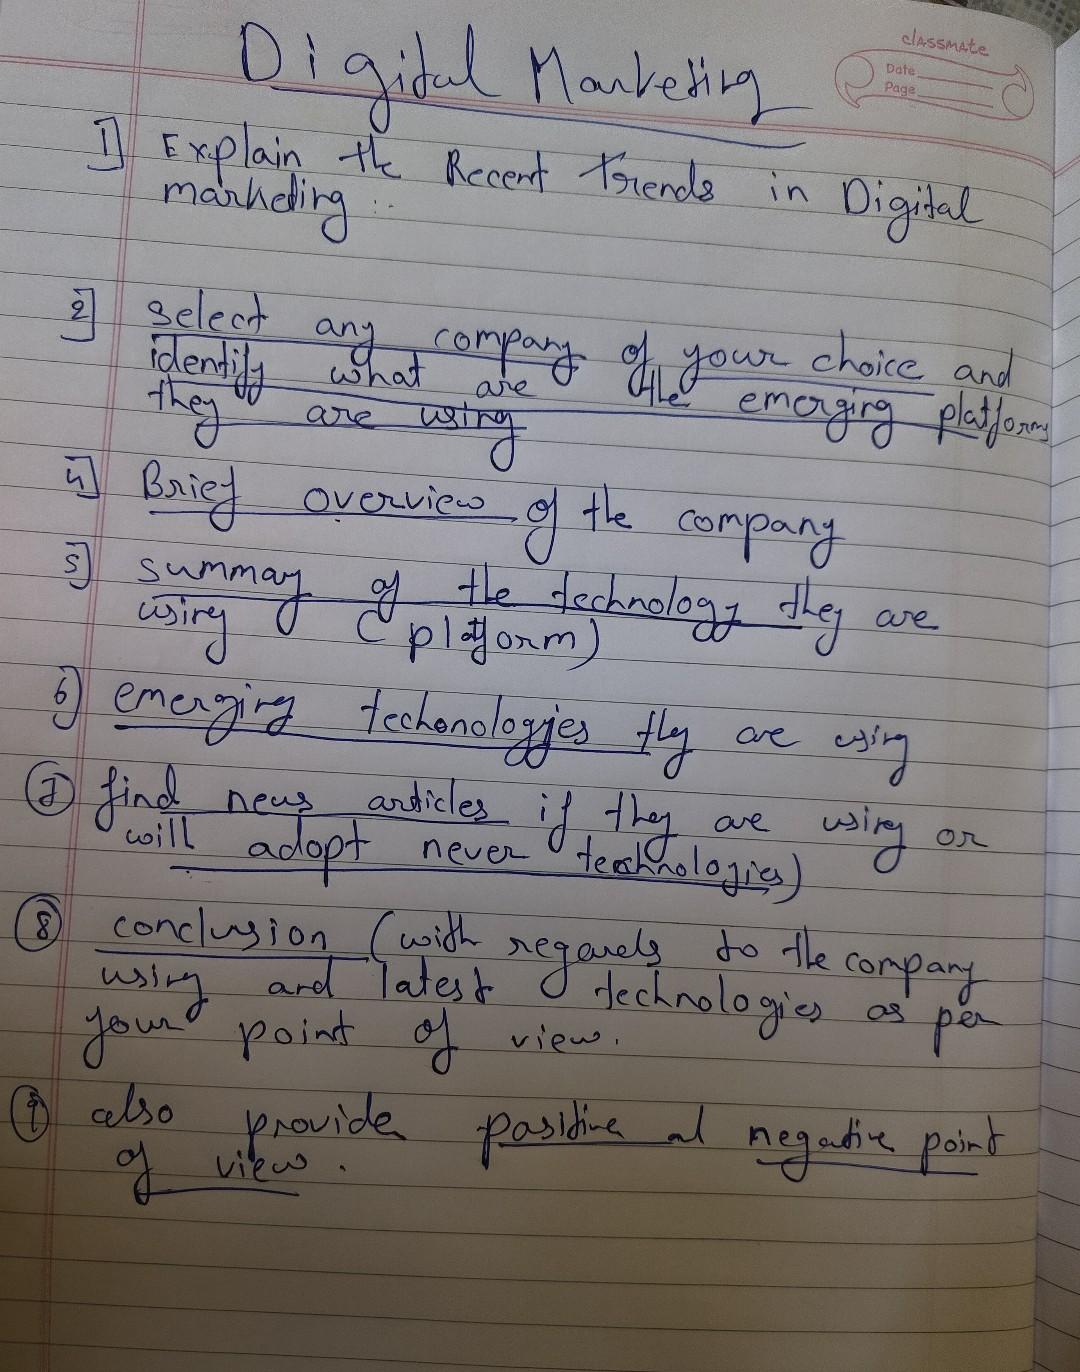 Digital Marketing
classmate
Date
Page
1] Explain the Recent Trends in Digital
marketing :-
2] select any company of your choice and
identify what are the emerging platforms
they are using
4] Brief overview of the company
5] summay of the technology they are
using (platform)
6] emerging techonologies they are using
7 find news articles if they are using or
will adopt newer technologies)
8 conclusion (with regards to the company
using and latest technologies as per
your point of view.
9 also provide positive and negative point
of view.